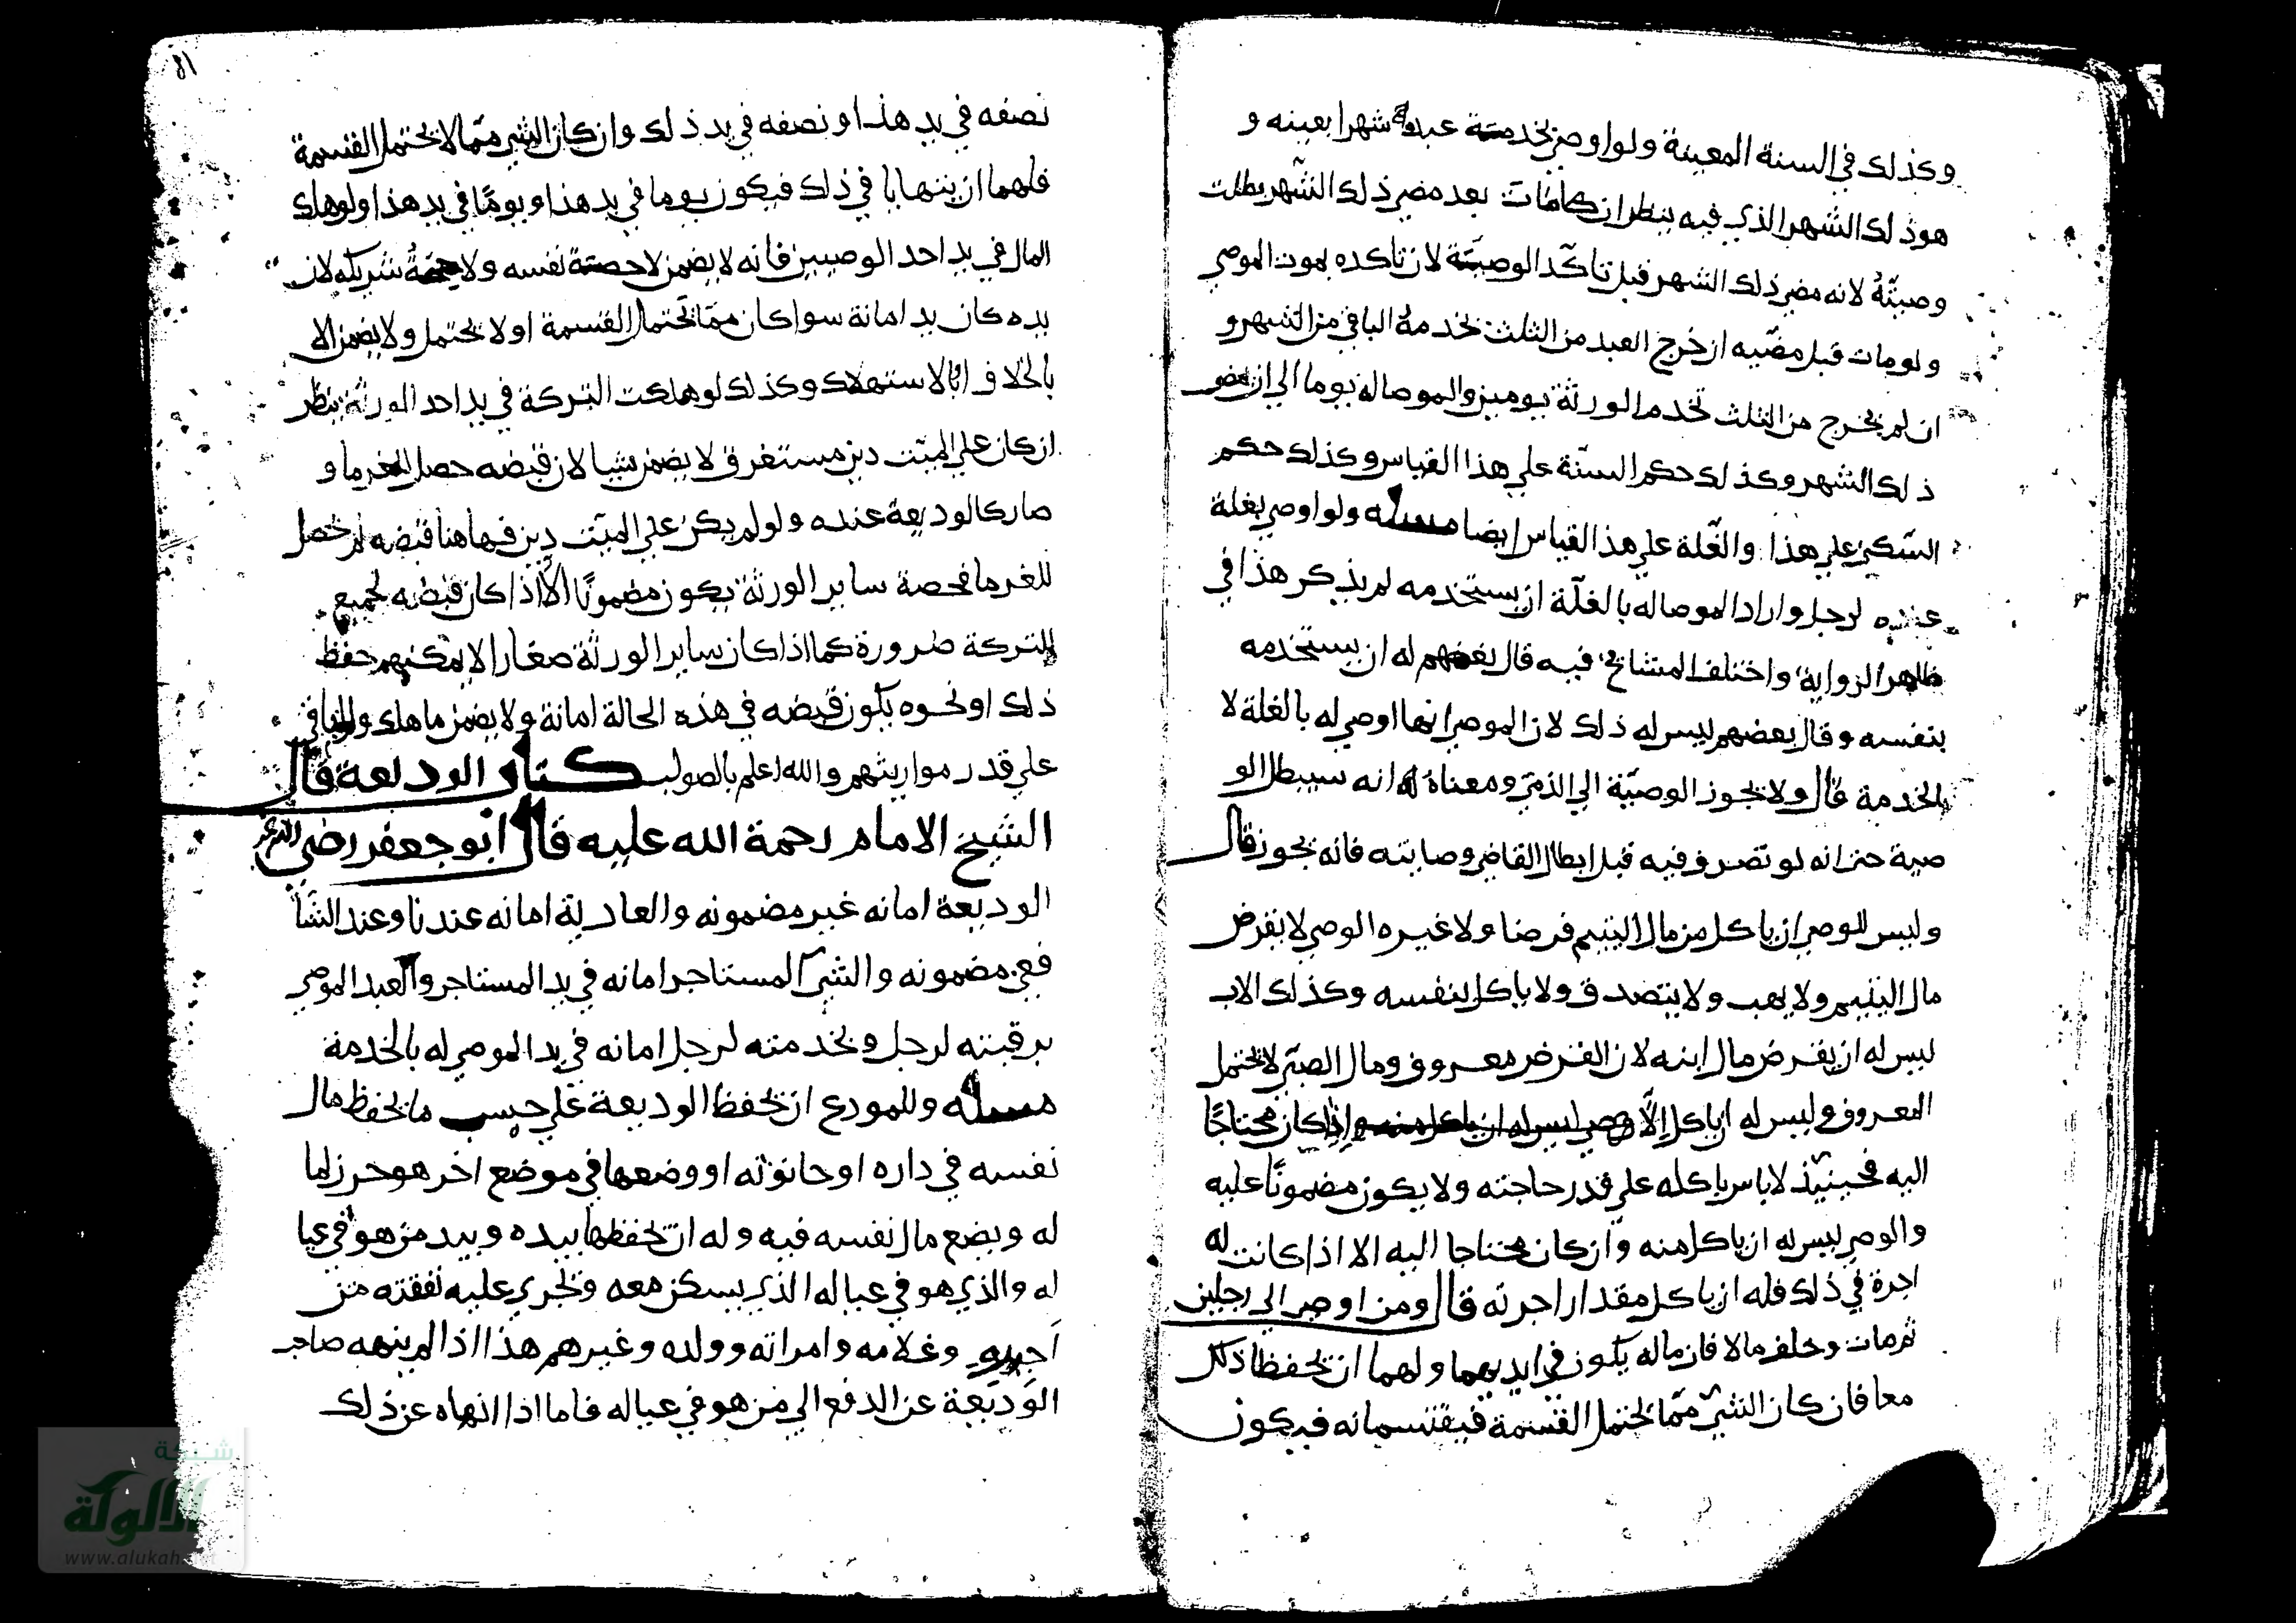 وكذلك في السنة المعينة ولو اوصى بخدمة عبده شهرا بعينه و
هو ذلك الشهر الذي فيه ينظر ان كان مات بعد مضى ذلك الشهر بطلت
وصيتهُ لانه مضى ذلك الشهر قبل تاكّد الوصيّة لان تاكده بموت الموصي
ولو مات قبل مضيه ان خرج العبد من الثلث بخدمة الباقي من الشهر و
ان لم يخرج من الثلث تخدم الورثة يومين والموصا له يوما الى ان مضى
ذلك الشهر وكذلك حكم السنّة على هذا القياس وكذلك حكم
السكنى على هذا والغلة على هذا القياس ايضا مسله ولو اوصى بغلة
عبده لرجل واراد الموصا له بالغلّة ان يستخدمه لم يذكر هذا في
ظاهر الرواية واختلف المشايخ فيه قال بعضهم له ان يستخدمه
بنفسه وقال بعضهم ليس له ذلك لان الموصي انما اوصي له بالغلة لا
بالخدمة قال ولا يجوز الوصيّة الى الذمّي ومعناه انه سيبطل الو
صية حتى انه لو تصرف فيه قبل ابطال القاضي وصايته فانه يجوز قال
وليس للوصي ان ياكل من مال اليتيم قرضا ولا غيره الوصي لا يقرض
مال اليتيم ولا يهب ولا يتصدق ولا ياكل بنفسه وكذلك الاب
ليس له ان يقرض مال ابنه لان القرض معروف ومال الصبّي لا يحتمل
المعروف وليس له ان ياكل إلّا وصي ليس له ان ياكل منه وإذا كان محتاجًا
اليه فحينئيذ لا باس باكله على قدر حاجته ولا يكون مضمونًا عليه
والوصي ليس له ان ياكل منه وان كان محتاجا اليه الا اذا كانت له
اجرة في ذلك فله ان ياكل مقدار اجرته قال ومن اوصى الى رجلين
ثم مات وخلف مالا فان ماله يكون في ايديهما ولهما ان يحفظا ذلك
معا فان كان الشيّ ممّا يحتمل القسمة فيقتسمانه فيكون
٨١
نصفه في يد هذا ونصفه في يد ذلك وان كان الشي ممّا لا يحتمل القسمة
فلهما ان يتهايا في ذلك فيكون يوما في يد هذا ويومًا في يد هذا ولو هلك
المال في يد احد الوصيين فانه لا يضمن لا حصة نفسه ولا حصّةُ شريكه لان
يده كان يد امانة سوا كان ممّا يحتمل القسمة او لا يحتمل ولا يضمن الا
بالخلاف او بالاستهلاك وكذلك لو هلكت التركة في يد احد الورثة ينظر
ان كان على الميّت دين مستغرق لا يضمن شيا لان قبضه حصل للغرما و
صار كالوديعة عنده ولو لم يكن على الميّت دين فهاهنا قبضه لم يحصل
للغرما فحصة ساير الورثة يكون مضمونًا الا اذا كان قبضه لجميع
التركة ضرورة كما اذا كان ساير الورثة صغارا لا يمكنهم حفظ
ذلك او نحوه يكون قبضه في هذه الحالة امانة ولا يضمن ما هلك والباقي
على قدر مواريثهم والله اعلم بالصواب كتاب الوديعة قال
الشيخ الامام رحمة الله عليه قال ابو جعفر رضي الله عنه
الوديعة امانه غير مضمونه والعارية امانه عندنا وعند الشا
فعي مضمونه والشيّ المستاجر امانه في يد المستاجر والعبد الموصى
برقبته لرجل وبخدمته لرجل امانه في يد الموصي له بالخدمة
مسله وللمودع ان يحفظ الوديعة على حسب ما يحفظ مال
نفسه في داره او حانوته او وضعها في موضع اخر هو حرز لما
له ويضع مال نفسه فيه وله ان يحفظها بيده وبيد من هو في عيا
له والذي هو في عياله الذي يسكن معه وتجري عليه نفقته من
اجيره وغلامه وامراته وولده وغيرهم هذا اذا لم ينهه صاحب
الوديعة عن الدفع الى من هو في عياله فاما اذا انهاه عن ذلك
شبكة
الألوكة
www.alukah.net